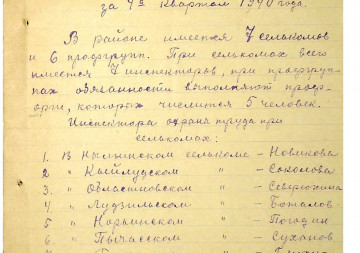 за 4й квартал 1940 года.
В районе имеется 7 селькомов
и 6 профгрупп. При селькомах всего
имеется 7 инспекторов, при профгруп-
пах обязанности выполняют проф-
орги, которых числится 5 человек.
Инспектора охраны труда при
селькомах:
1. В Нылгинском селькоме – Новикова
2 " Кыйлудском " – Соколова
3. " Областновском " – Севрюгина
4. " Лудзильском " – Боталов.
5 " Норьинском " – Погодин
6 " Пычасском " – Суханов